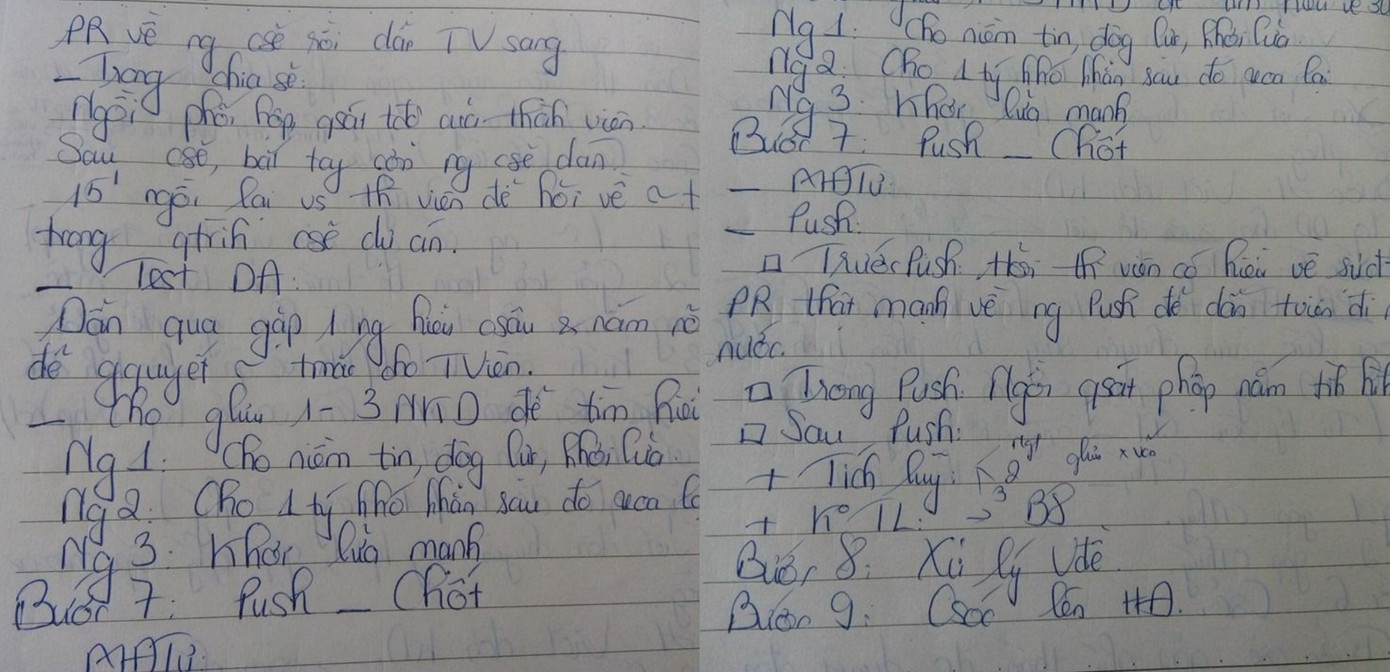 PR về ng csẻ rồi dẫn TV sang
– Trong chia sẻ:
Ngồi phối hợp qsát tđộ của thàh viên.
Sau csẻ, bắt tay cảm ng csẻ dẫn
15' ngồi lại vs th viên để hỏi về
trong qtrìh csẻ dự án.
– Test DA:
Dẫn qua gặp 1 ng hiểu csâu & nắm rõ
để gquyết tmắc cho TViên.
– Cho ghiu 1 - 3 NKD để tìm hiểu
Ng 1: Cho niềm tin, độg lực, khơi lửa.
Ng 2: Cho 1 tý khó khăn sau đó qua
Ng 3: Khơi lửa mạnh
Bước 7: Push – Chốt
AHĐTư
Ng 1: Cho niềm tin, độg lực, khơi lửa.
Ng 2: Cho 1 tý khó khăn sau đó qua lại
Ng 3: Khơi lửa mạnh
Bước 7: Push – Chốt
– AHĐTư
– Push:
□ Trước Push: Hỏi th viên có hiểu về
PR thật mạnh về ng Push để dẫn tviên đi
nước.
□ Trong Push: Ngồi qsát phợp nắm tìh hìh
□ Sau Push:
+ Tích lũy:
+ K° TL: → B8
Bước 8: Xử lý Vđề.
Bước 9: Csóc lên HĐ.